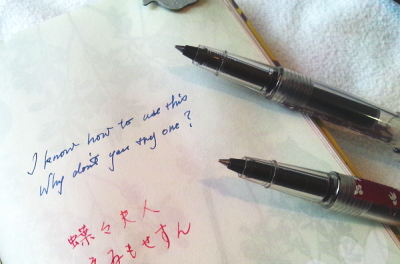 I know how to use this
Why don't you try one?
蝶々夫人
もせすん